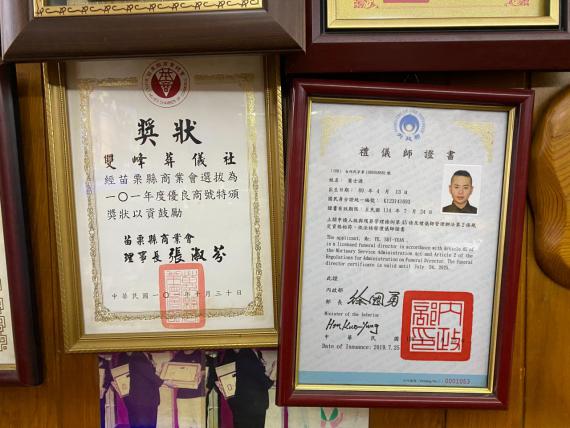 獎狀
雙峰葬儀社
經苗栗縣商業會選拔為
一○一年度優良商號特頒
獎狀以資鼓勵
苗栗縣商業會
理事長 張淑芬
中華民國一○二年十月三十日
內政部
禮儀師證書
姓名：葉士源
出生日期：80 年 4 月 13 日
國民身分證統一編號：K123143093
證書有效期限：至民國 114 年 7 月 24 日
The applicant, Mr. YE, SHI-YUAN,
is a licensed funeral director in accordance with Article 45 of
the Mortuary Service Administration Act and Article 2 of the
Regulations for Administration on Funeral Director. The funeral
director certificate is valid until July 24, 2025.
此證
內政部
部長 徐國勇
Minister of the Interior
Hsu Kuo-Yung
中華民國
Date of Issuance: 2019.7.25
內政部印
0001053